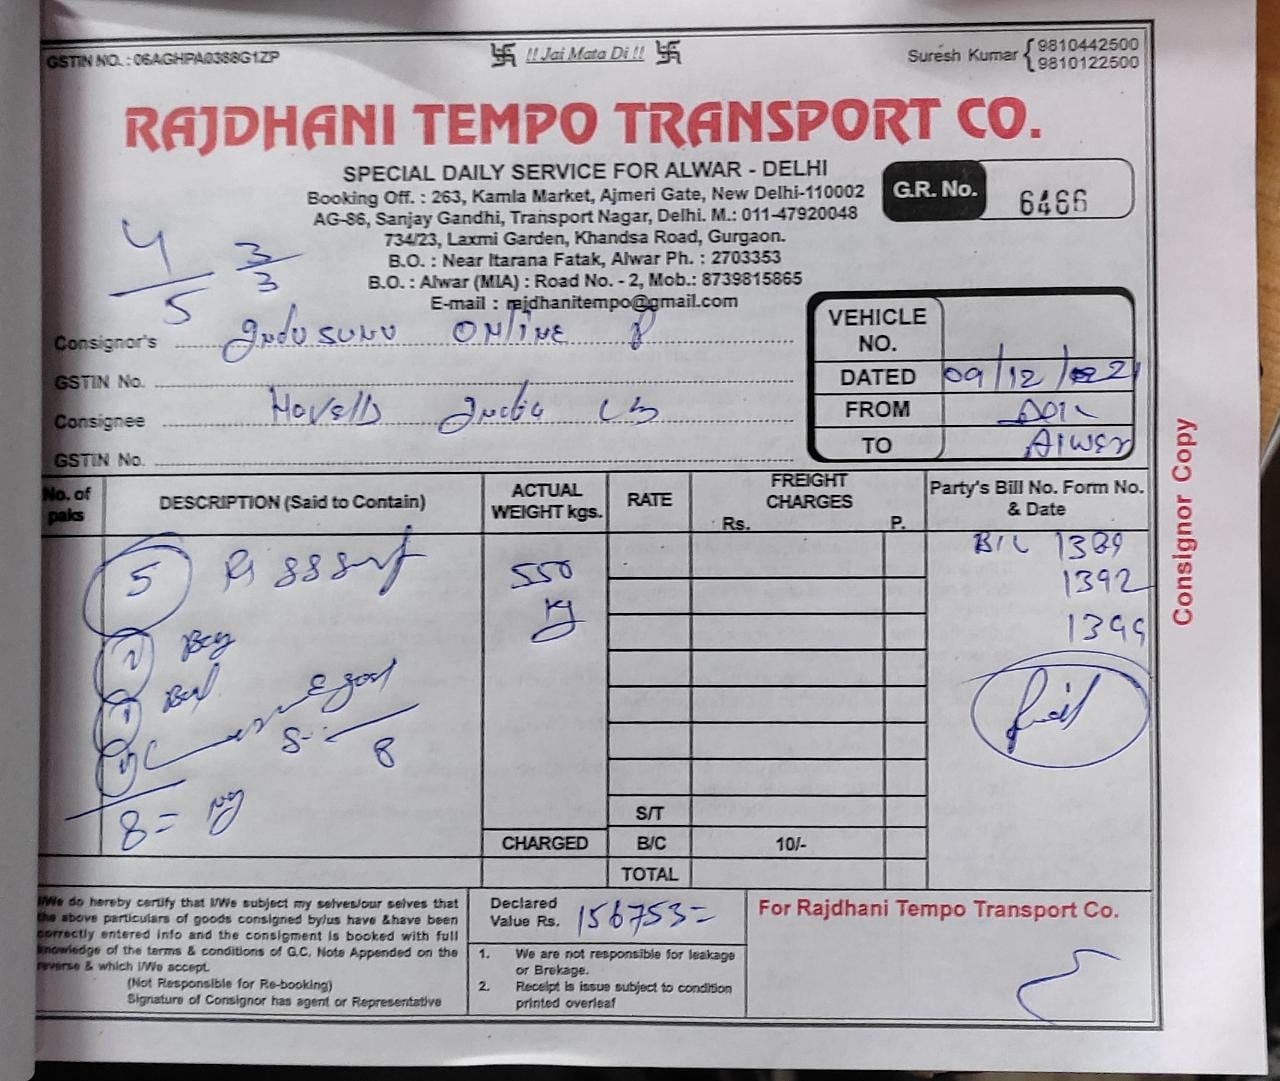 GSTIN NO. : 06AGHPA0388G1ZP
!! Jai Mata Di !!
Suresh Kumar { 9810442500
9810122500
RAJDHANI TEMPO TRANSPORT CO.
SPECIAL DAILY SERVICE FOR ALWAR - DELHI
Booking Off. : 263, Kamla Market, Ajmeri Gate, New Delhi-110002
AG-86, Sanjay Gandhi, Transport Nagar, Delhi. M.: 011-47920048
734/23, Laxmi Garden, Khandsa Road, Gurgaon.
B.O. : Near Itarana Fatak, Alwar Ph. : 2703353
B.O. : Alwar (MIA) : Road No. - 2, Mob.: 8739815865
E-mail : rajdhanitempo@gmail.com
G.R. No. 6466
4/5 3/3
Consignor's ONLINE P
GSTIN No.
Consignee Havells India
GSTIN No.
VEHICLE NO.
DATED 09/12/
FROM
TO Alwar
No. of paks
DESCRIPTION (Said to Contain)
ACTUAL WEIGHT kgs.
RATE
FREIGHT CHARGES
Rs. P.
Party's Bill No. Form No. & Date
5
550
Kg
Bill 1389
1392
1399
8
8 =
S/T
CHARGED B/C 10/-
TOTAL
I/We do hereby certify that I/We subject my selves/our selves that
the above particulars of goods consigned by/us have &have been
correctly entered info and the consigment is booked with full
knowledge of the terms & conditions of G.C. Note Appended on the
reverse & which I/We accept.
(Not Responsible for Re-booking)
Signature of Consignor has agent or Representative
Declared
Value Rs. 156753=
1. We are not responsible for leakage
or Brekage.
2. Receipt is issue subject to condition
printed overleaf
For Rajdhani Tempo Transport Co.
Consignor Copy